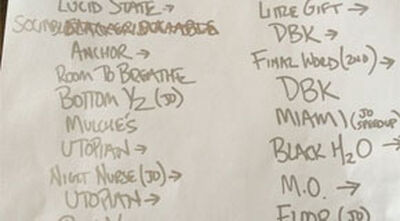 LUCID STATE →
SOCIABLE
ANCHOR →
ROOM TO BREATHE
BOTTOM 1/2 (JO)
MULCHE'S
UTOPIAN →
NIGHT NURSE (JO) →
UTOPIAN →
LITTLE GIFT →
DBK →
FINAL WORD (2ND) →
DBK
MIAMI (JO SPEEDUP)
BLACK H2O →
M.O. →